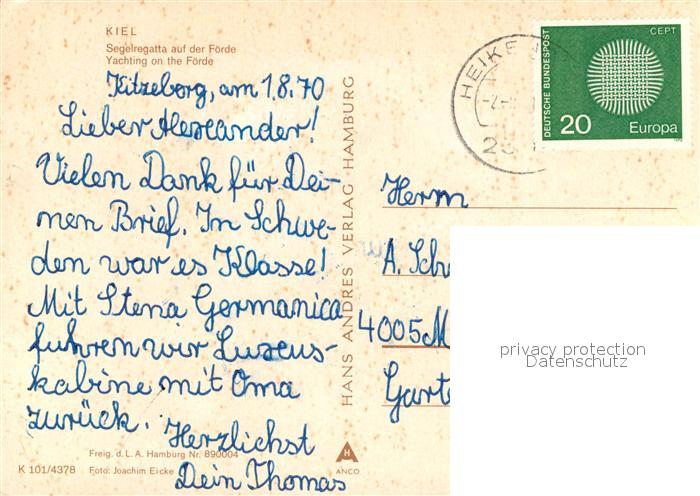 KIEL
Segelregatta auf der Förde
Yachting on the Förde
Kitzeberg, am 1.8.70
Lieber Alexander!
Vielen Dank für Dei-
nen Brief. In Schwe-
den war es Klasse!
Mit Stena Germanica
fuhren wir Luxus-
kabine mit Oma
zurück.
Herzlichst
Dein Thomas
Freig. d. L. A. Hamburg Nr. 890004
K 101/4378 Foto: Joachim Eicke
HANS ANDRES VERLAG HAMBURG
ANCO
HEIKE
DEUTSCHE BUNDESPOST
CEPT
20 Europa
Herrn
A. Sch
4005 M
Garte
privacy protection
Datenschutz